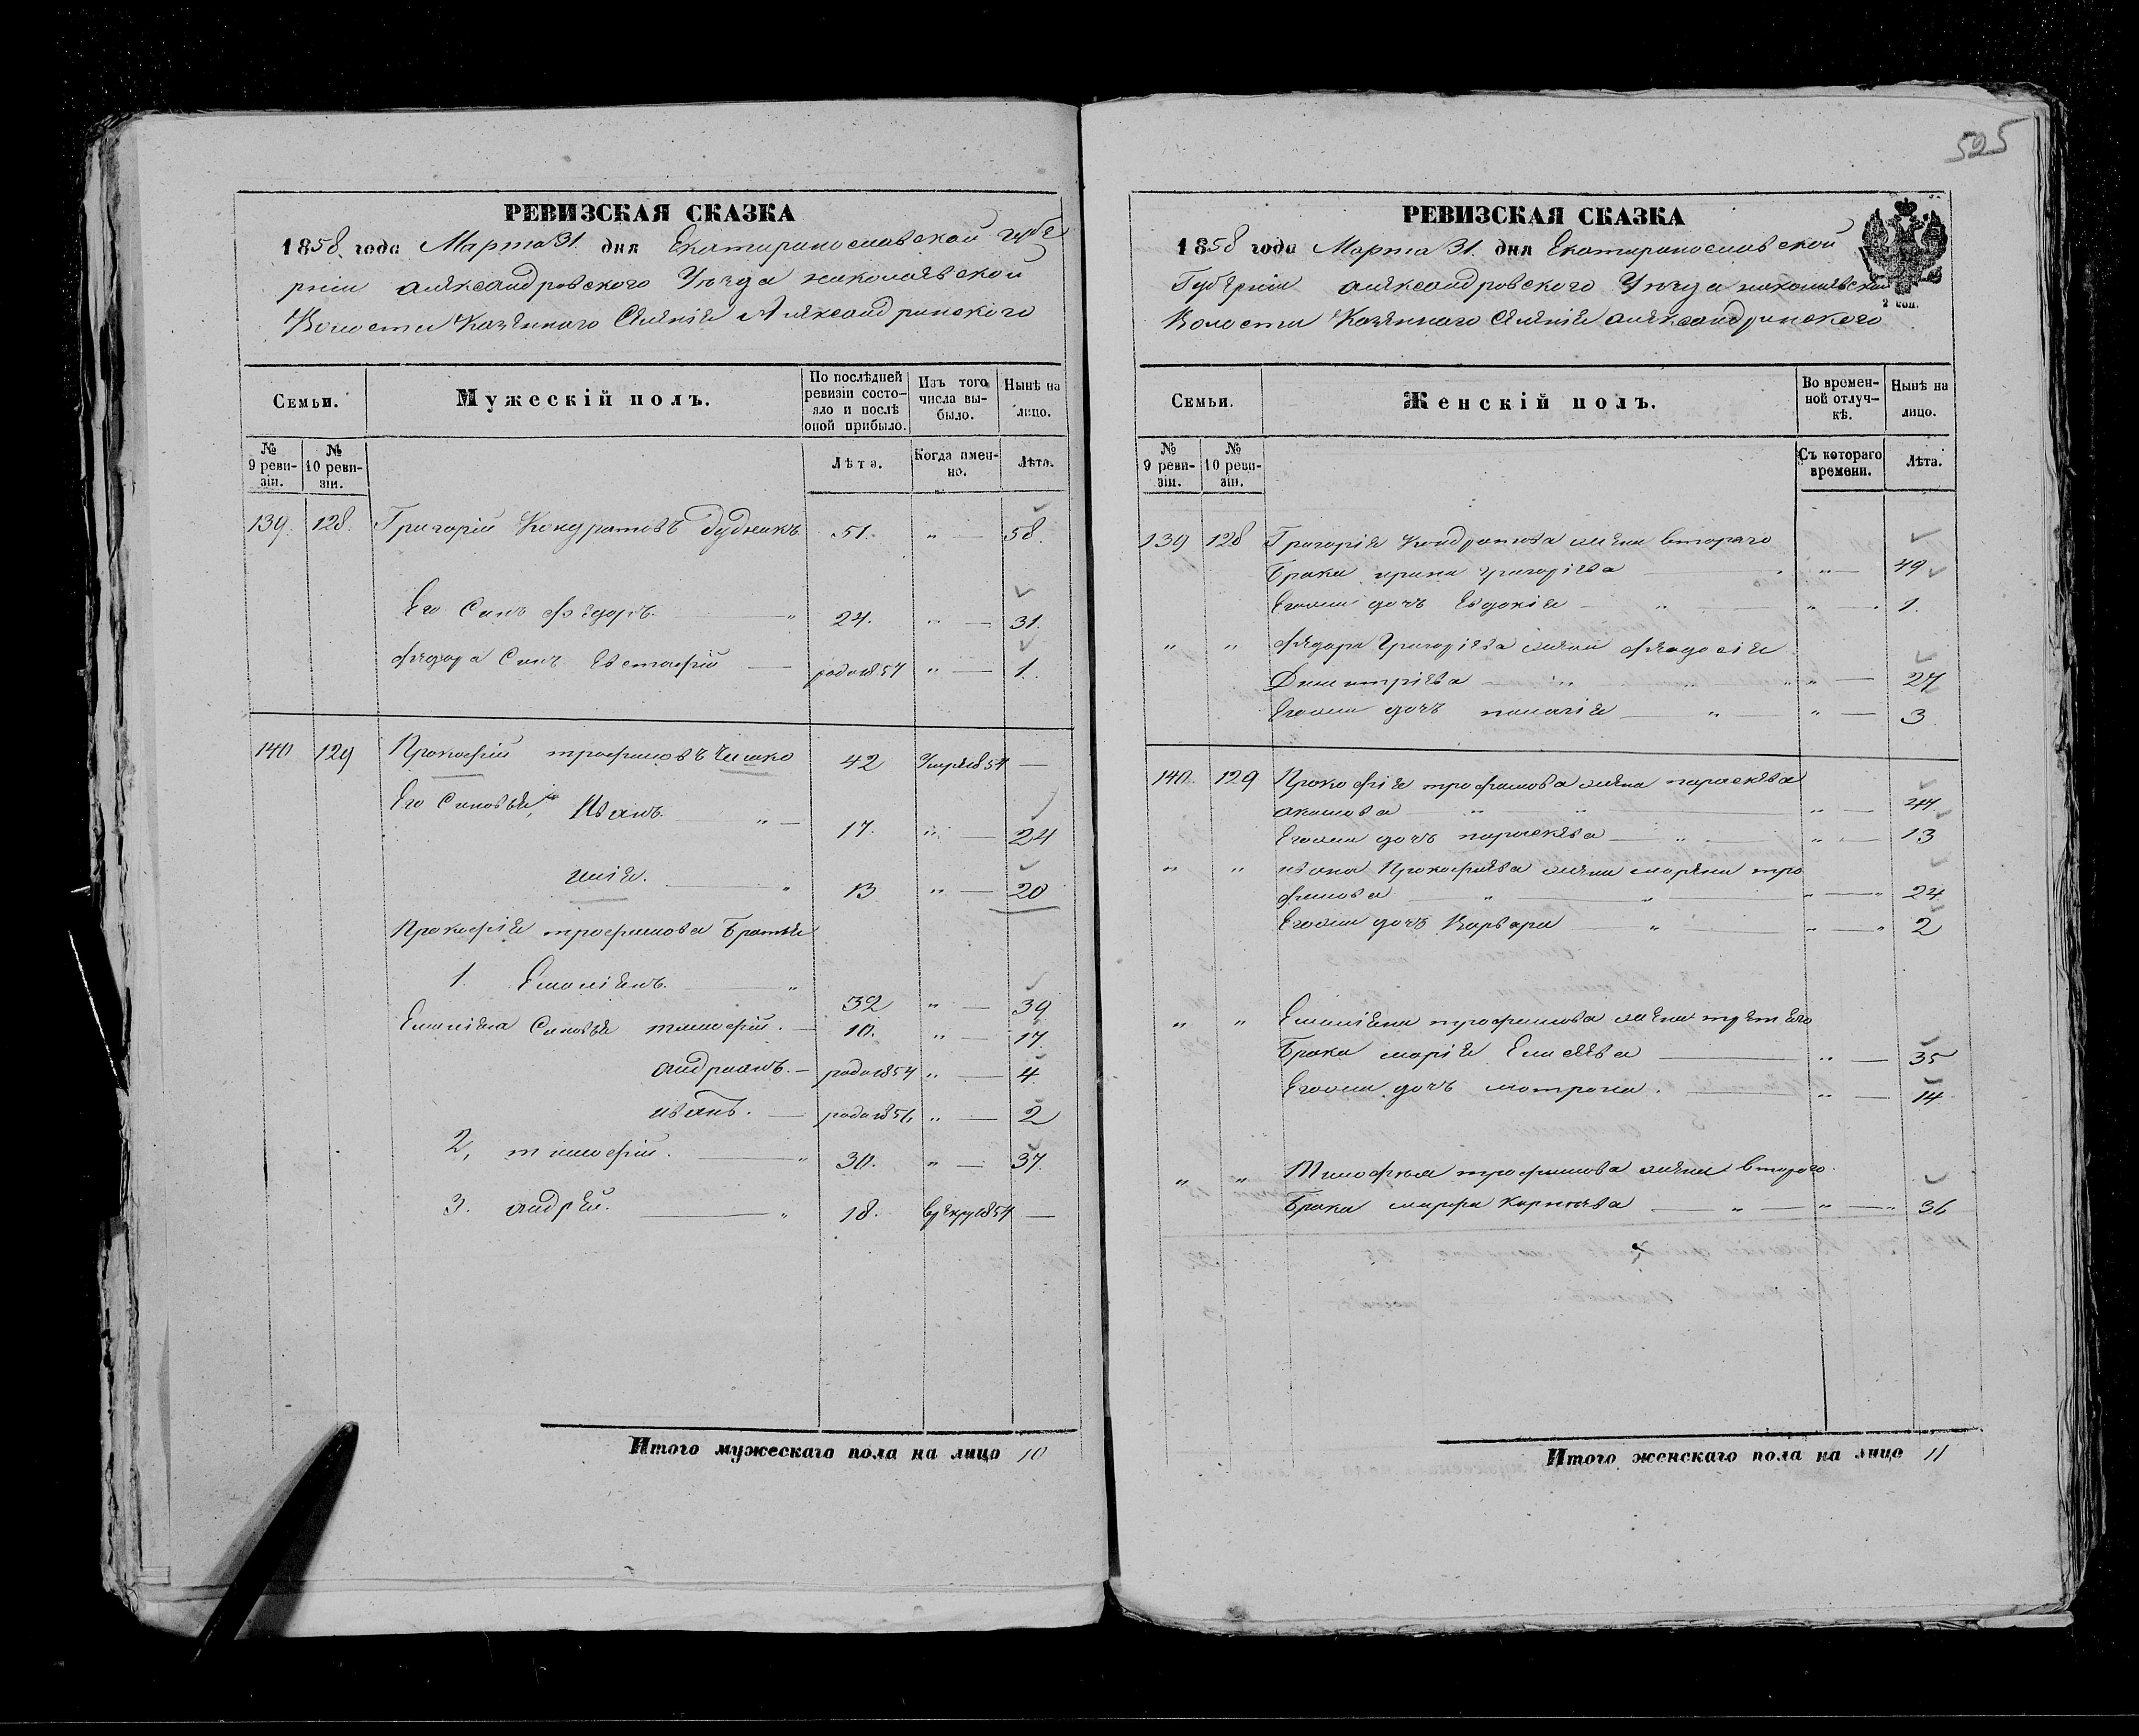 525
РЕВИЗСКАЯ СКАЗКА
1858 года Марта 31. дня Екатеринославской губе
рнiи александровского Уѣзда николаевской
Волости Казенного Селенiя Александринского
Семьи.
Мужескiй полъ.
По послѣдней ревизiи состояло и послѣ оной прибыло.
Изъ того числа выбыло.
Нынѣ на лицо.
№ 9 ревизiи.
№ 10 ревизiи.
Лѣта.
Когда именно.
Лѣта.
139. 128. Григорiй Кондратовъ Дудникъ 51. " — 58.
Его Синъ Фѣдоръ. " 24. " — 31.
Федора Синъ Евстафiй — родо1857 " — 1.
140 129 Прокофiй трофимовъ Чишко 42 Умре1854 —
Его Синовья, Иванъ. " — 17. " — 24
илiя. " 13 " — 20
Прокофiя трофимова Братья
1. Емелiянъ. " 32 " — 39
Емелiяна Синовья тимофiй. — 10. " — 17.
андриянъ. — родо1854 " — 4.
иванъ. — родо1856 " — 2
2, тимофiй. " 30. " — 37.
3. андрей. " 18. —
Итого мужескаго пола на лицо 10
РЕВИЗСКАЯ СКАЗКА
1858 года Марта 31. дня Екатеринославской
Губернiи александровского Уѣзда николаевской
2 коп.
Волости Казенного Селенiя александринского
Семьи.
Женскiй полъ.
Во временной отлучкѣ.
Нынѣ на лицо.
№ 9 ревизiи.
№ 10 ревизiи.
Съ котораго времени.
Лѣта.
139 128 Григорiя Кондратова жена втораго
Брака ирина григорiева " — 49
Егоже дочь Евдокiя " " — 1.
" " Федора Григорiева жена Феодосiя
Димитрiева " " " " — 27
Егоже дочь пелагiя " " — 3
140. 129 Прокофiя трофимова жена параскева
акимова " " " — 44
Егоже дочь параскева " " — 13
" " ивана Прокофiева жена марина тро
фимова " " " — 24.
Егоже дочь Варвара " " — " 2
" " Емелiяна трофимова жена третего
Брака марiя Елисеева " — 35
Егоже дочь мотрона. " — 14.
" " Тимофея трофимова жена второго.
Брака марфа Корнеева " " — " 36
Итого женскаго пола на лицо 11